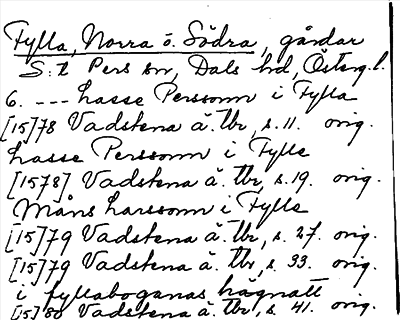 Fylla, Norra o. Södra, gårdar
S:t Pers sn, Dals hd, Österg.l.
6. --- Lasse Perssonn i Fylla
[15]78 Vadstena ä. tbr, s. 11. orig.
Lasse Perssonn i Fylle
[1578] Vadstena ä. tbr, s. 19. orig.
Måns Larssonn i Fylle
[15]79 Vadstena ä. tbr, s. 27. orig.
[15]79 Vadstena ä. tbr, s. 33. orig.
i fyllaboganas hagnatt
[15]80 Vadstena ä. tbr, s. 41. orig.